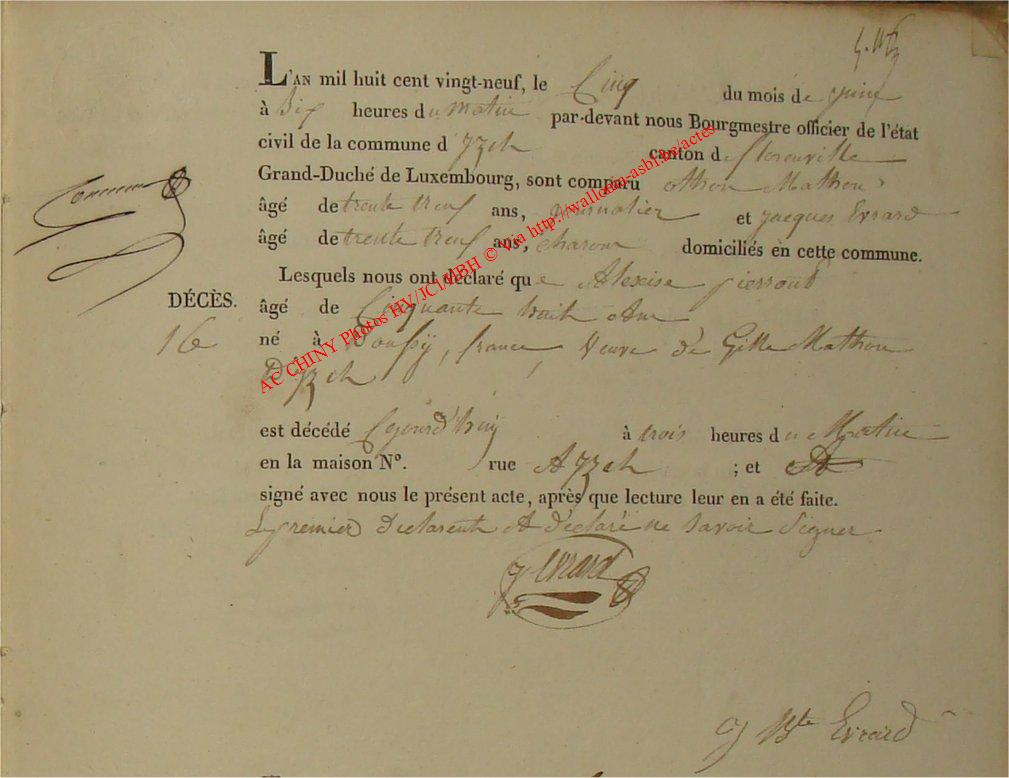 L'AN mil huit cent vingt-neuf, le Cinq du mois de juin
à Dix heures du Matin par-devant nous Bourgmestre officier de l'état
civil de la commune d'Izel canton de florenville
Grand-Duché de Luxembourg, sont comparu othon Mathon
âgé de trente neuf ans, journalier et jacques Evrard
âgé de trente neuf ans, charon domiciliés en cette commune.
Lesquels nous ont déclaré que Alexise pierrout
DÉCÈS. âgé de Cinquante huit ans
16 né à , france, Veuve de Gille Mathon
D'izel
est décédé à trois heures du Matin
en la maison N°. rue A izel ; et
signé avec nous le présent acte, après que lecture leur en a été faite.
Le premier Declarent A déclaré ne Savoir Signer
J Evrard
J Bte Evrard
AC CHINY Photos HV/JCM/MBH © via http://wallonia-asbl.be/actes